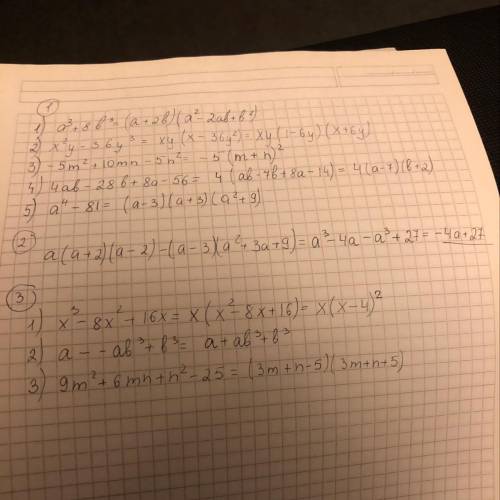 1
1) a³ + 8b³ = (a + 2b)(a² - 2ab + b²)
2) x²y - 36y³ = xy(x - 36y²) = xy(1-6y)(x+6y)
3) -5m² + 10mn - 5n² = -5(m+n)²
4) 4ab - 28b + 8a - 56 = 4(ab - 7b + 8a - 14) = 4(a-7)(b+2)
5) a⁴ - 81 = (a-3)(a+3)(a²+9)
2
a(a+2)(a-2) - (a-3)(a²+3a+9) = a³ - 4a - a³ + 27 = -4a + 27
3
1) x³ - 8x² + 16x = x(x² - 8x + 16) = x(x-4)²
2) a - - ab³ + b³ = a + ab³ + b³
3) 9m² + 6mn + n² - 25 = (3m+n-5)(3m+n+5)